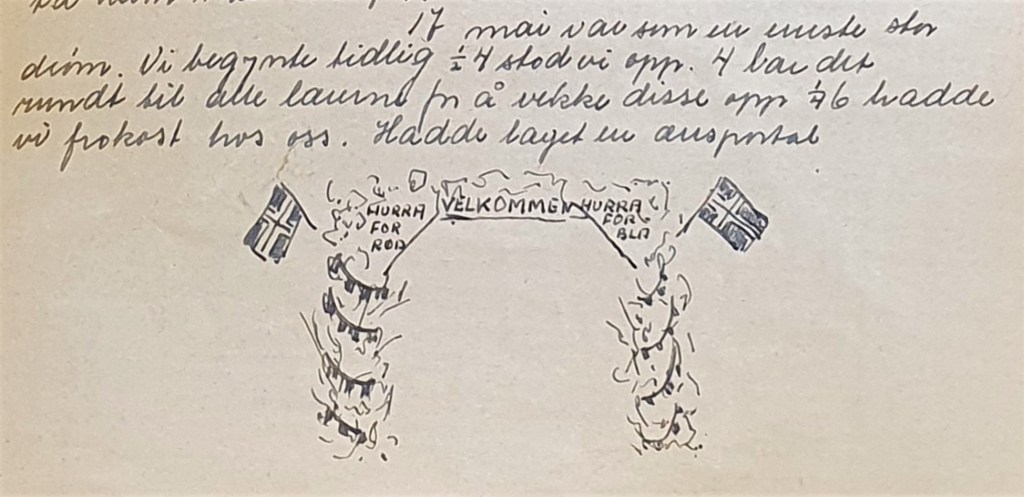 17 mai var som en eneste stor
drøm. Vi begynte tidlig ½ 4 stod vi opp. 4 bar det
rundt til alle lærerne for å vekke disse opp ½ 6 hadde
vi frokost hos oss. Hadde laget en æresportal
HURRA FOR RØD
VELKOMMEN
HURRA FOR BLÅ